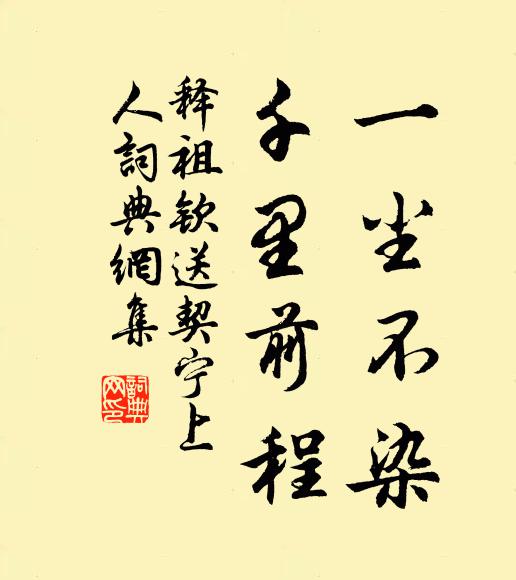 一尘不染
千里前程
释祖钦送契宁上
人詞典網集
詞典
网印